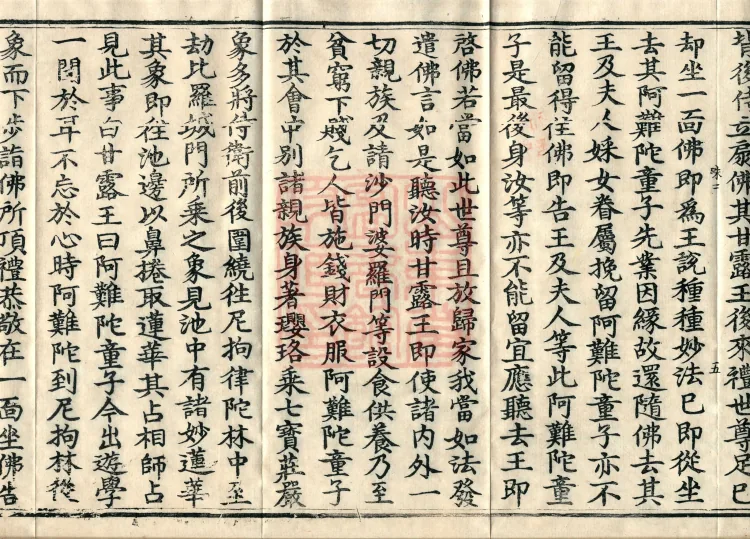 皆後住立扇佛其甘露王後來禮世尊足已
却坐一面佛即為王說種種妙法已即從坐
去其阿難陀童子先業因緣故還隨佛去其
王及夫人婇女眷屬挽留阿難陀童子亦不
能留得住佛即告王及夫人等此阿難陀童
子是最後身汝等亦不能留宜應聽去王即
啓佛若當如此世尊且放歸家我當如法發
遣佛言如是聽汝時甘露王即使諸內外一
切親族及請沙門婆羅門等設食供養乃至
貧窮下賤乞人皆施錢財衣服阿難陀童子
於其會中別諸親族身著瓔珞乘七寶莊嚴
象多將侍衛前後圍繞往尼拘律陀林中至
劫比羅城門所乘之象見池中有諸妙蓮華
其象即往池邊以鼻捲取蓮華其占相師占
見此事白甘露王曰阿難陀童子今出遊學
一聞於耳不忘於心時阿難陀到尼拘林從
象而下步詣佛所頂禮恭敬在一面坐佛告
五